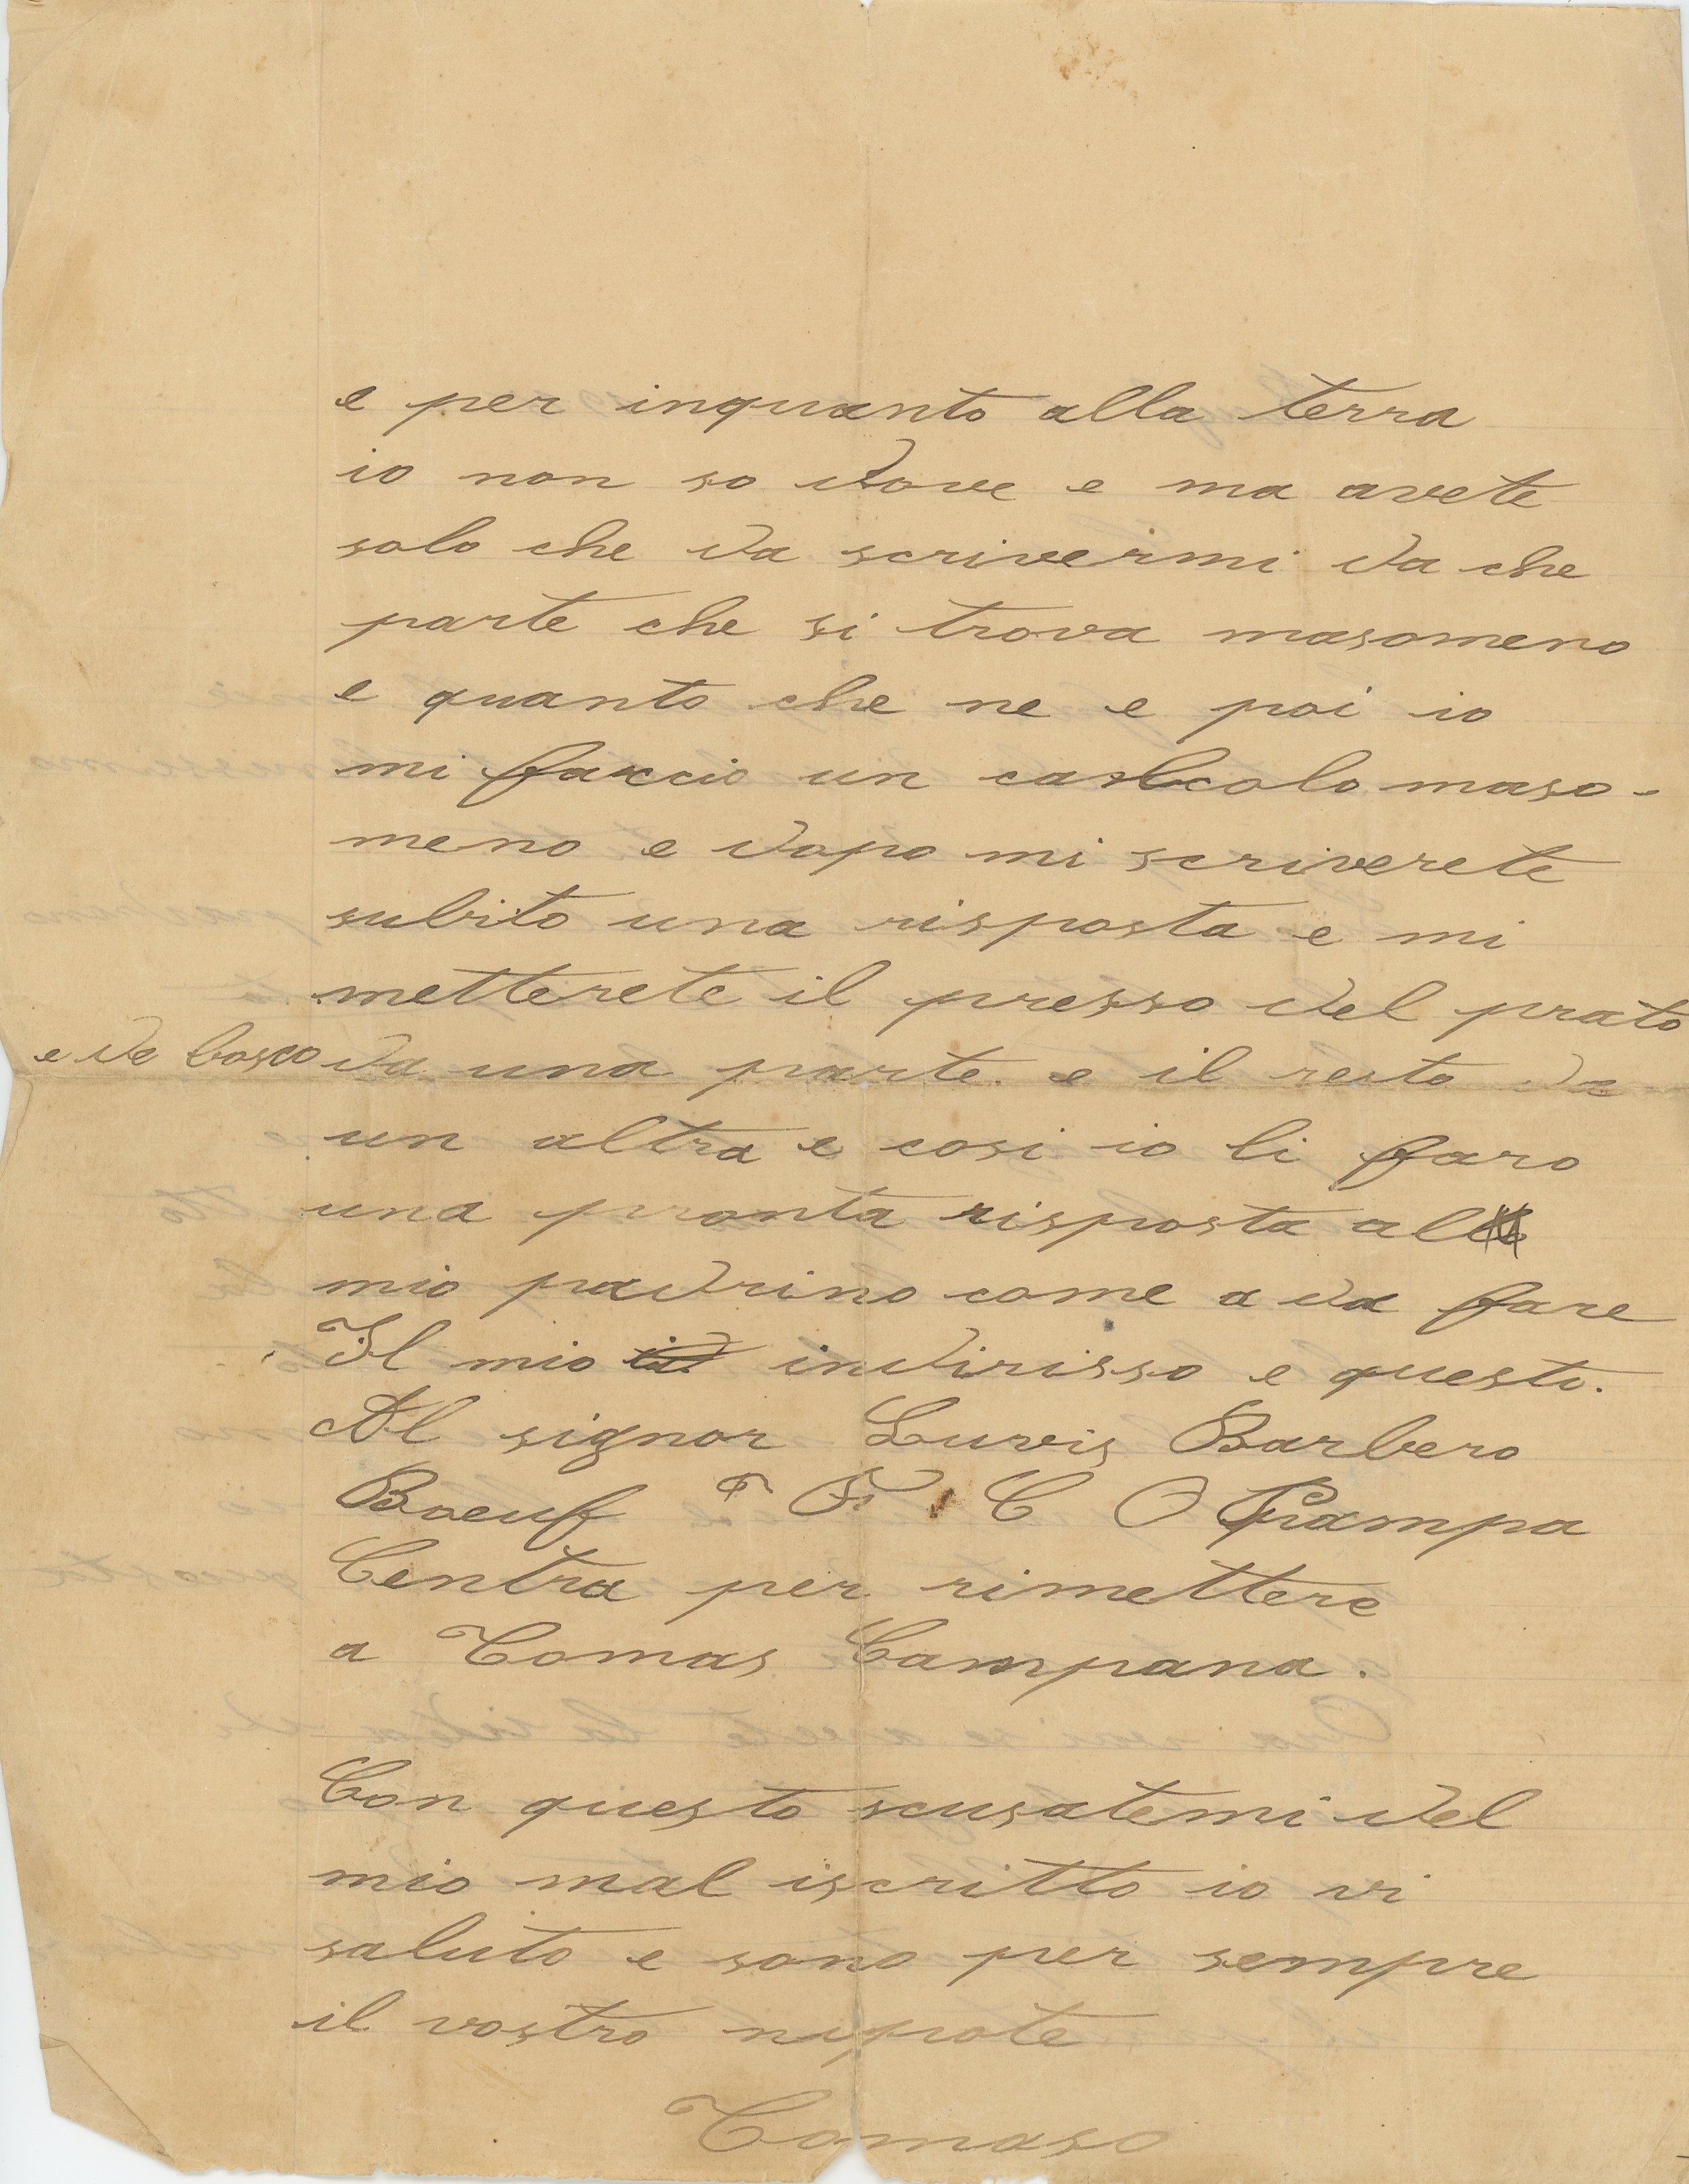 e per inquanto alla terra
io non so dove e ma avete
solo che da scrivermi da che
parte che si trova masomeno
e quanto che ne e poi io
mi faccio un calcolo maso-
meno e dopo mi scriverete
subito una risposta e mi
metterete il presso del prato
e de bosco da una parte e il resto da
un altra e cosi io li faro
una pronta risposta al
mio padrino come a da fare
Il mio indirisso e questo.
Al signor Luvis Barbero
Boeuf F C O Pampa
Centra per rimettere
a Tomas Campana.
Con questo scusatemi del
mio mal iscritto io vi
saluto e sono per sempre
il vostro nipote
Tomaso